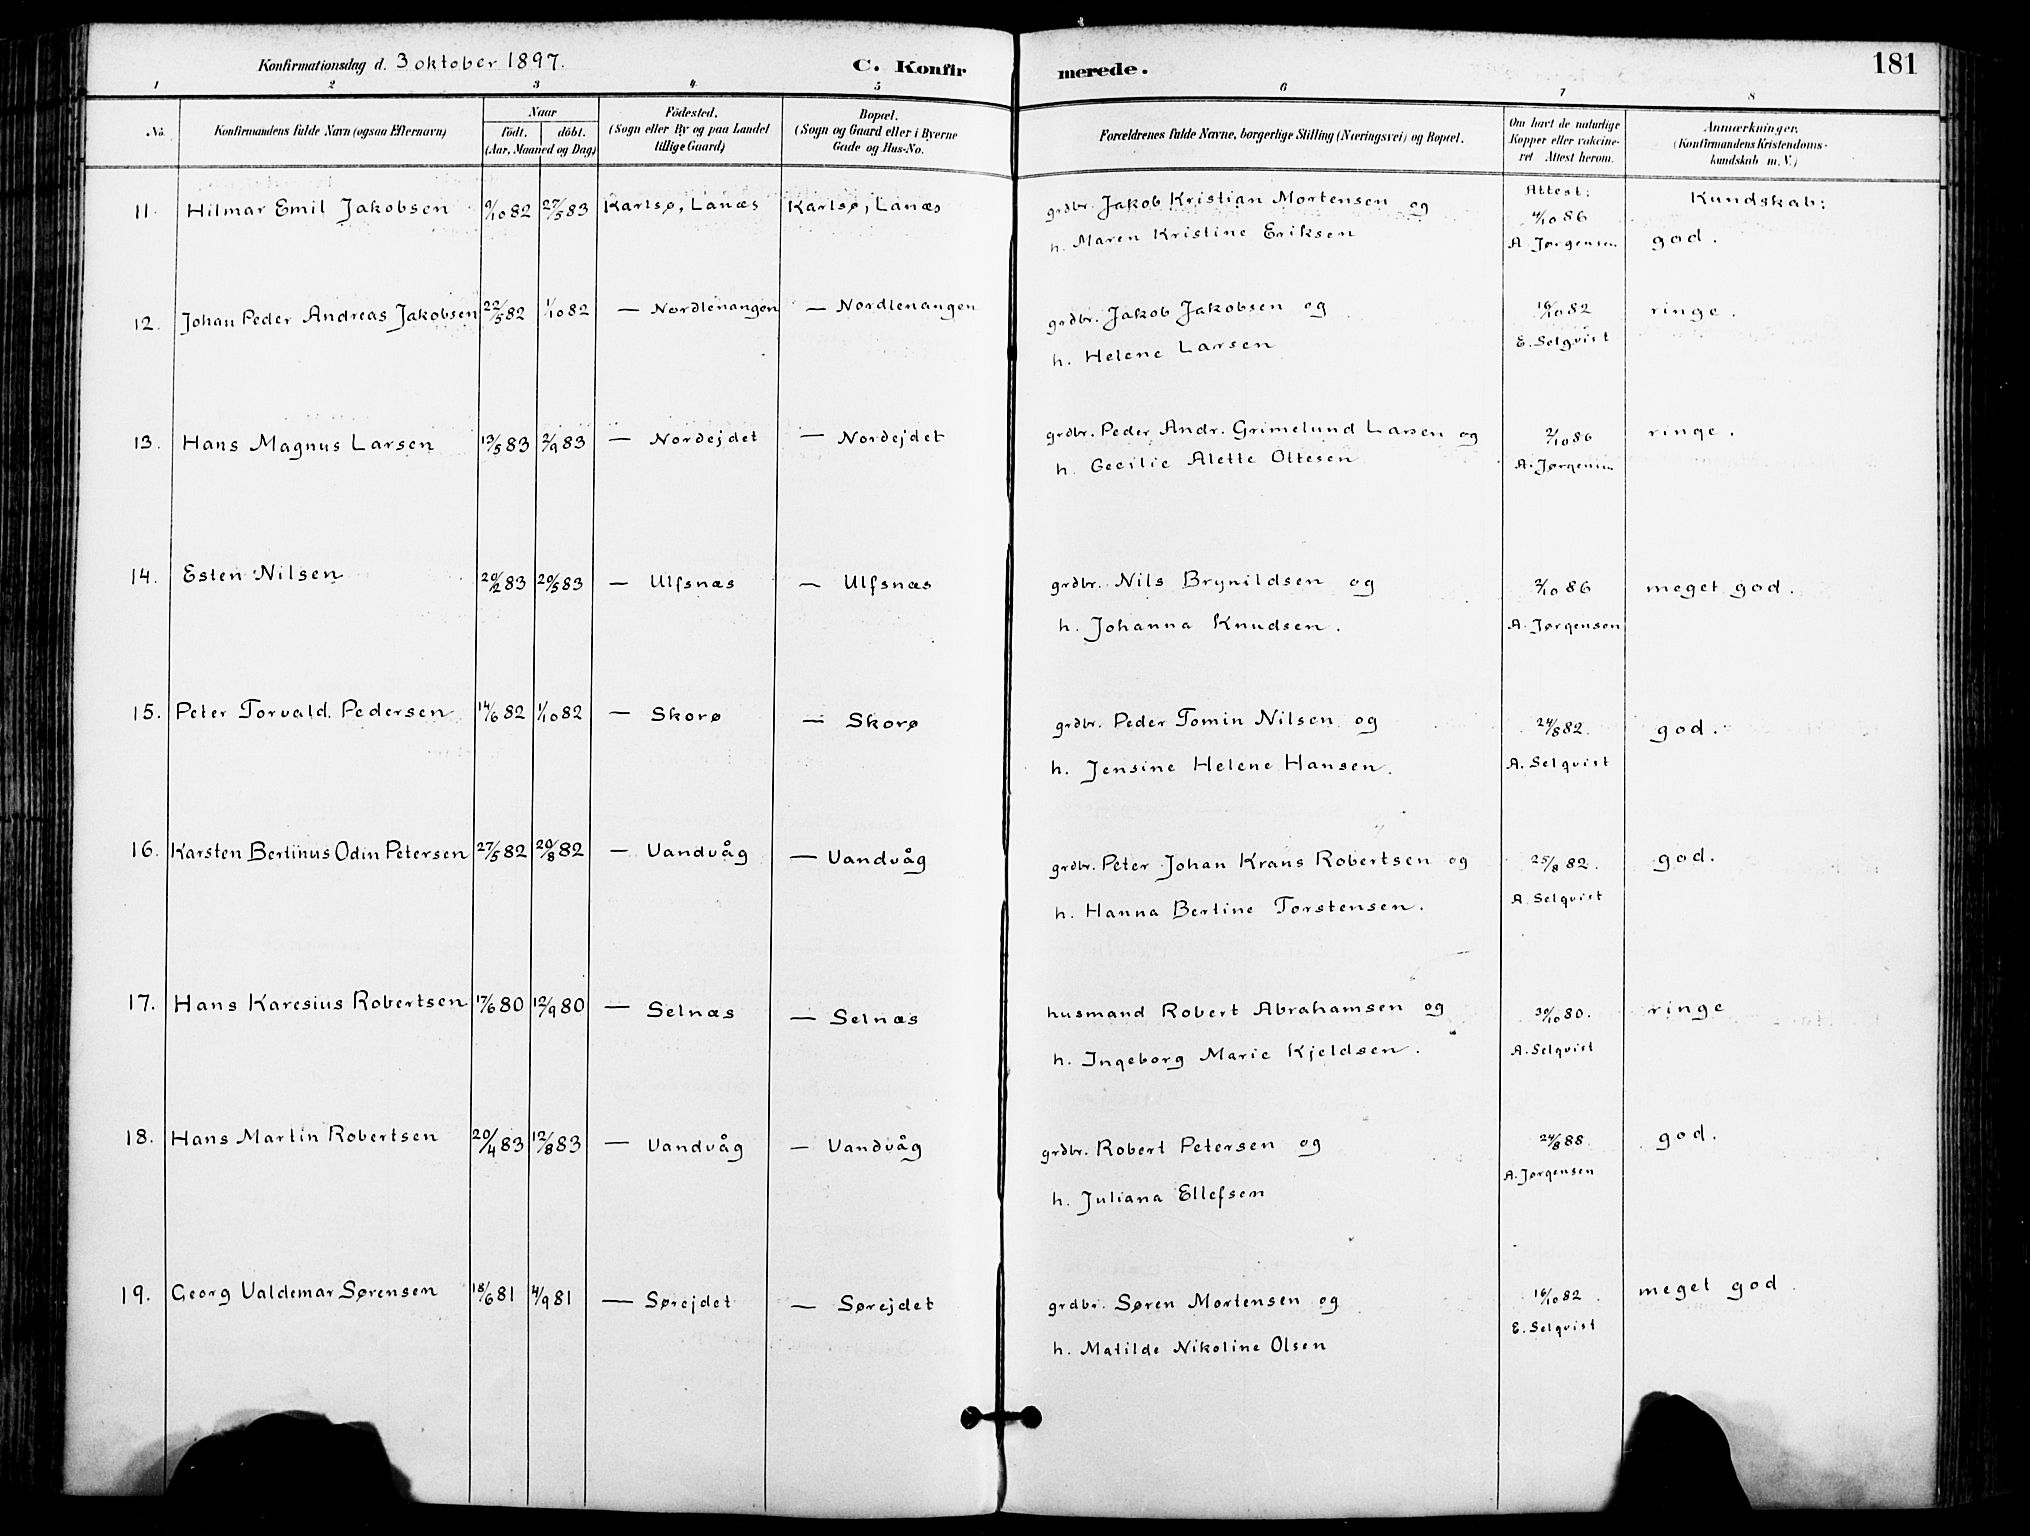 Konfirmationsdag d. 3 oktober 1897. C. Konfirmerede. 181
1 2 3 4 5 6 7 8
No. Konfirmandens fulde Navn (ogsaa Efternavn) Naar Födt. döbt. (Aar, Maaned og Dag) Födested. (Sogn eller By og paa Landet tillige Gaard) Bopæl. (Sogn og Gaard eller i Byerne Gade og Hus-No. Forældrenes fulde Navne, borgerlige Stilling (Næringsvei) og Bopæl. Om havt de naturlige Kopper eller vakcineret Attest herom. Anmærkninger. (Konfirmandens Kristendomskundskab m. V.)
Attest: Kundskab:
11. Hilmar Emil Jakobsen 9/10 82 27/5 83 Karlsø, Lanæs Karlsø, Lanæs grdbr. Jakob Kristian Mortensen og 4/10 86
h. Maren Kristine Eriksen A. Jørgensen god.
12. Johan Peder Andreas Jakobsen 22/5 82 1/10 82 — Nordlenangen — Nordlenangen grdbr. Jakob Jakobsen og 16/10 82 ringe.
h. Helene Larsen E. Selqvist
13. Hans Magnus Larsen 13/5 83 2/9 83 — Nordejdet — Nordejdet grdbr. Peder Andr. Grimelund Larsen og 2/10 86 ringe.
h. Cecilie Alette Ottesen A. Jørgensen
14. Esten Nilsen 20/2 83 20/5 83 — Ulfsnæs — Ulfsnæs grdbr. Nils Brynildsen og 2/10 86 meget god.
h. Johanna Knudsen. A. Jørgensen
15. Peter Torvald Pedersen 14/6 82 1/10 82 — Skorø — Skorø grdbr. Peder Tomin Nilsen og 24/8 82. god.
h. Jensine Helene Hansen. A. Selqvist
16. Karsten Bertinus Odin Petersen 27/5 82 20/8 82 — Vandvåg — Vandvåg grdbr. Peter Johan Krans Robertsen og 25/8 82. god.
h. Hanna Bertine Torstensen. A Selqvist
17. Hans Karesius Robertsen 17/6 80 12/9 80 — Selnæs — Selnæs husmand Robert Abrahamsen og 30/10 80. ringe
h. Ingeborg Marie Kjeldsen. A. Selqvist
18. Hans Martin Robertsen 20/4 83 12/8 83 — Vandvåg — Vandvåg grdbr. Robert Petersen og 24/8 88. god.
h. Juliana Ellefsen A. Jørgensen
19. Georg Valdemar Sørensen 18/6 81 4/9 81 — Sørejdet — Sørejdet grdbr. Søren Mortensen og 16/10 82. meget god.
h. Matilde Nikoline Olsen E. Selqvist